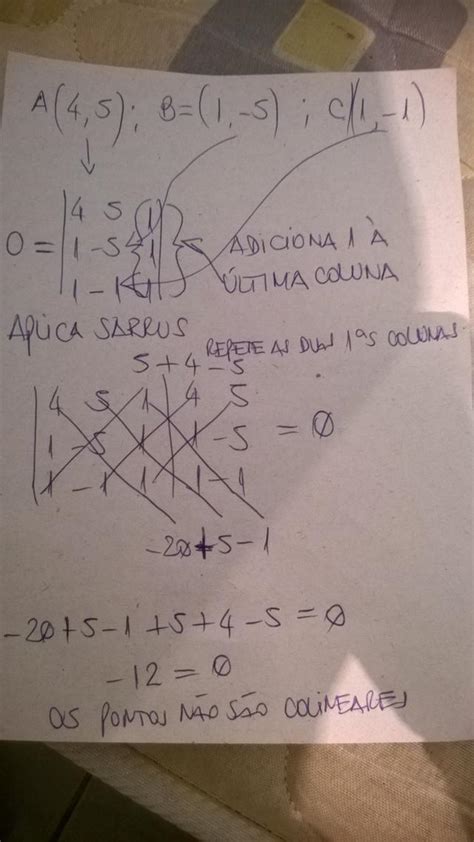 A(4,5); B=(1,-5); C(1,-1)
0 = |4 5 1|
|1 -5 1| ADICIONA 1 À
|1 -1 1| ÚLTIMA COLUNA
APLICA SARRUS
REPETE AS DUAS 1ªS COLUNAS
5+4-5
|4 5 1| 4 5
|1 -5 1| 1 -5 = 0
|1 -1 1| 1 -1
-20+5-1
-20+5-1+5+4-5=0
-12=0
OS PONTOS NÃO SÃO COLINEARES